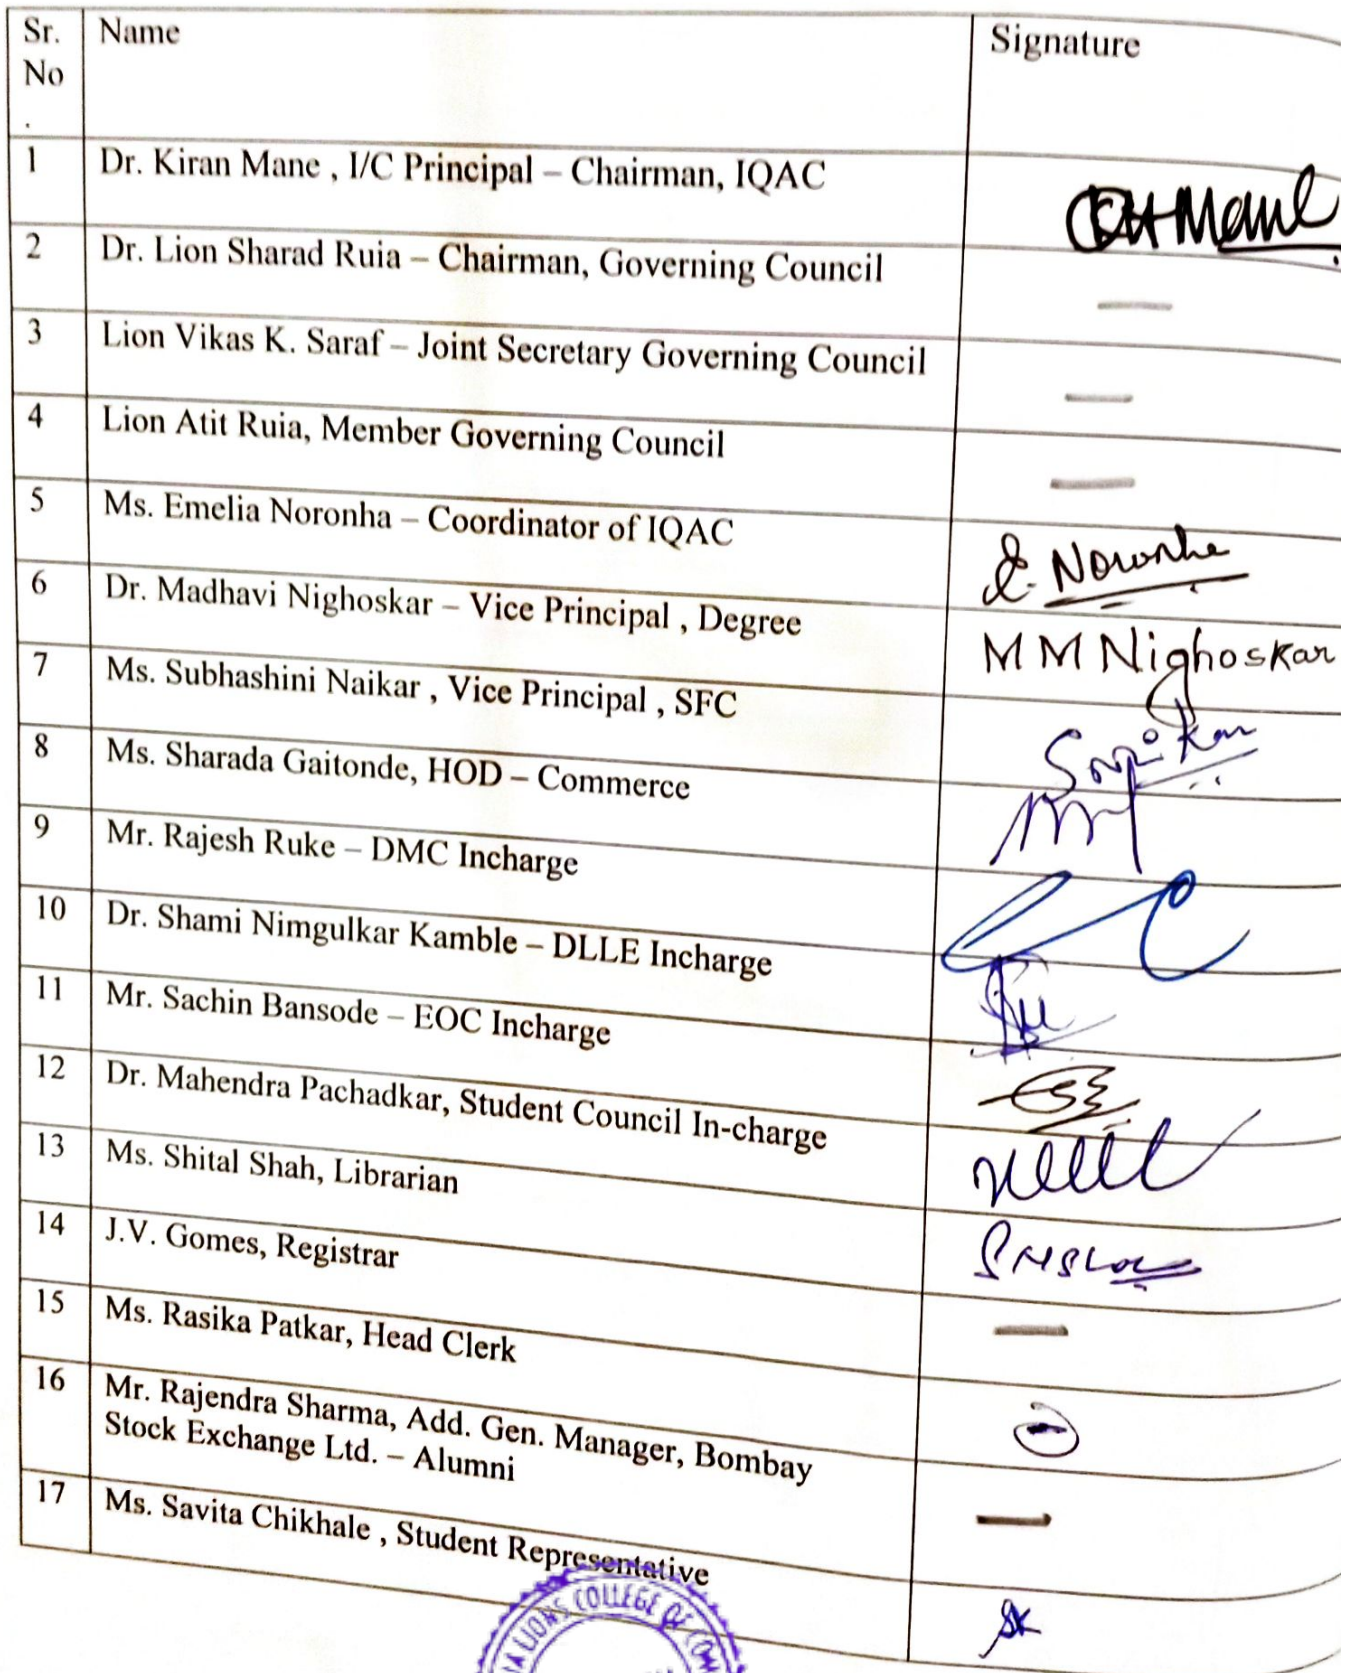 Sr. Name Signature
No
.
1 Dr. Kiran Mane , I/C Principal – Chairman, IQAC
2 Dr. Lion Sharad Ruia – Chairman, Governing Council —
3 Lion Vikas K. Saraf – Joint Secretary Governing Council —
4 Lion Atit Ruia, Member Governing Council —
5 Ms. Emelia Noronha – Coordinator of IQAC E. Noronha
6 Dr. Madhavi Nighoskar – Vice Principal , Degree M M Nighoskar
7 Ms. Subhashini Naikar , Vice Principal , SFC
8 Ms. Sharada Gaitonde, HOD – Commerce
9 Mr. Rajesh Ruke – DMC Incharge
10 Dr. Shami Nimgulkar Kamble – DLLE Incharge
11 Mr. Sachin Bansode – EOC Incharge
12 Dr. Mahendra Pachadkar, Student Council In-charge
13 Ms. Shital Shah, Librarian
14 J.V. Gomes, Registrar —
15 Ms. Rasika Patkar, Head Clerk
16 Mr. Rajendra Sharma, Add. Gen. Manager, Bombay
Stock Exchange Ltd. – Alumni —
17 Ms. Savita Chikhale , Student Representative SK
LIONS COLLEGE OF